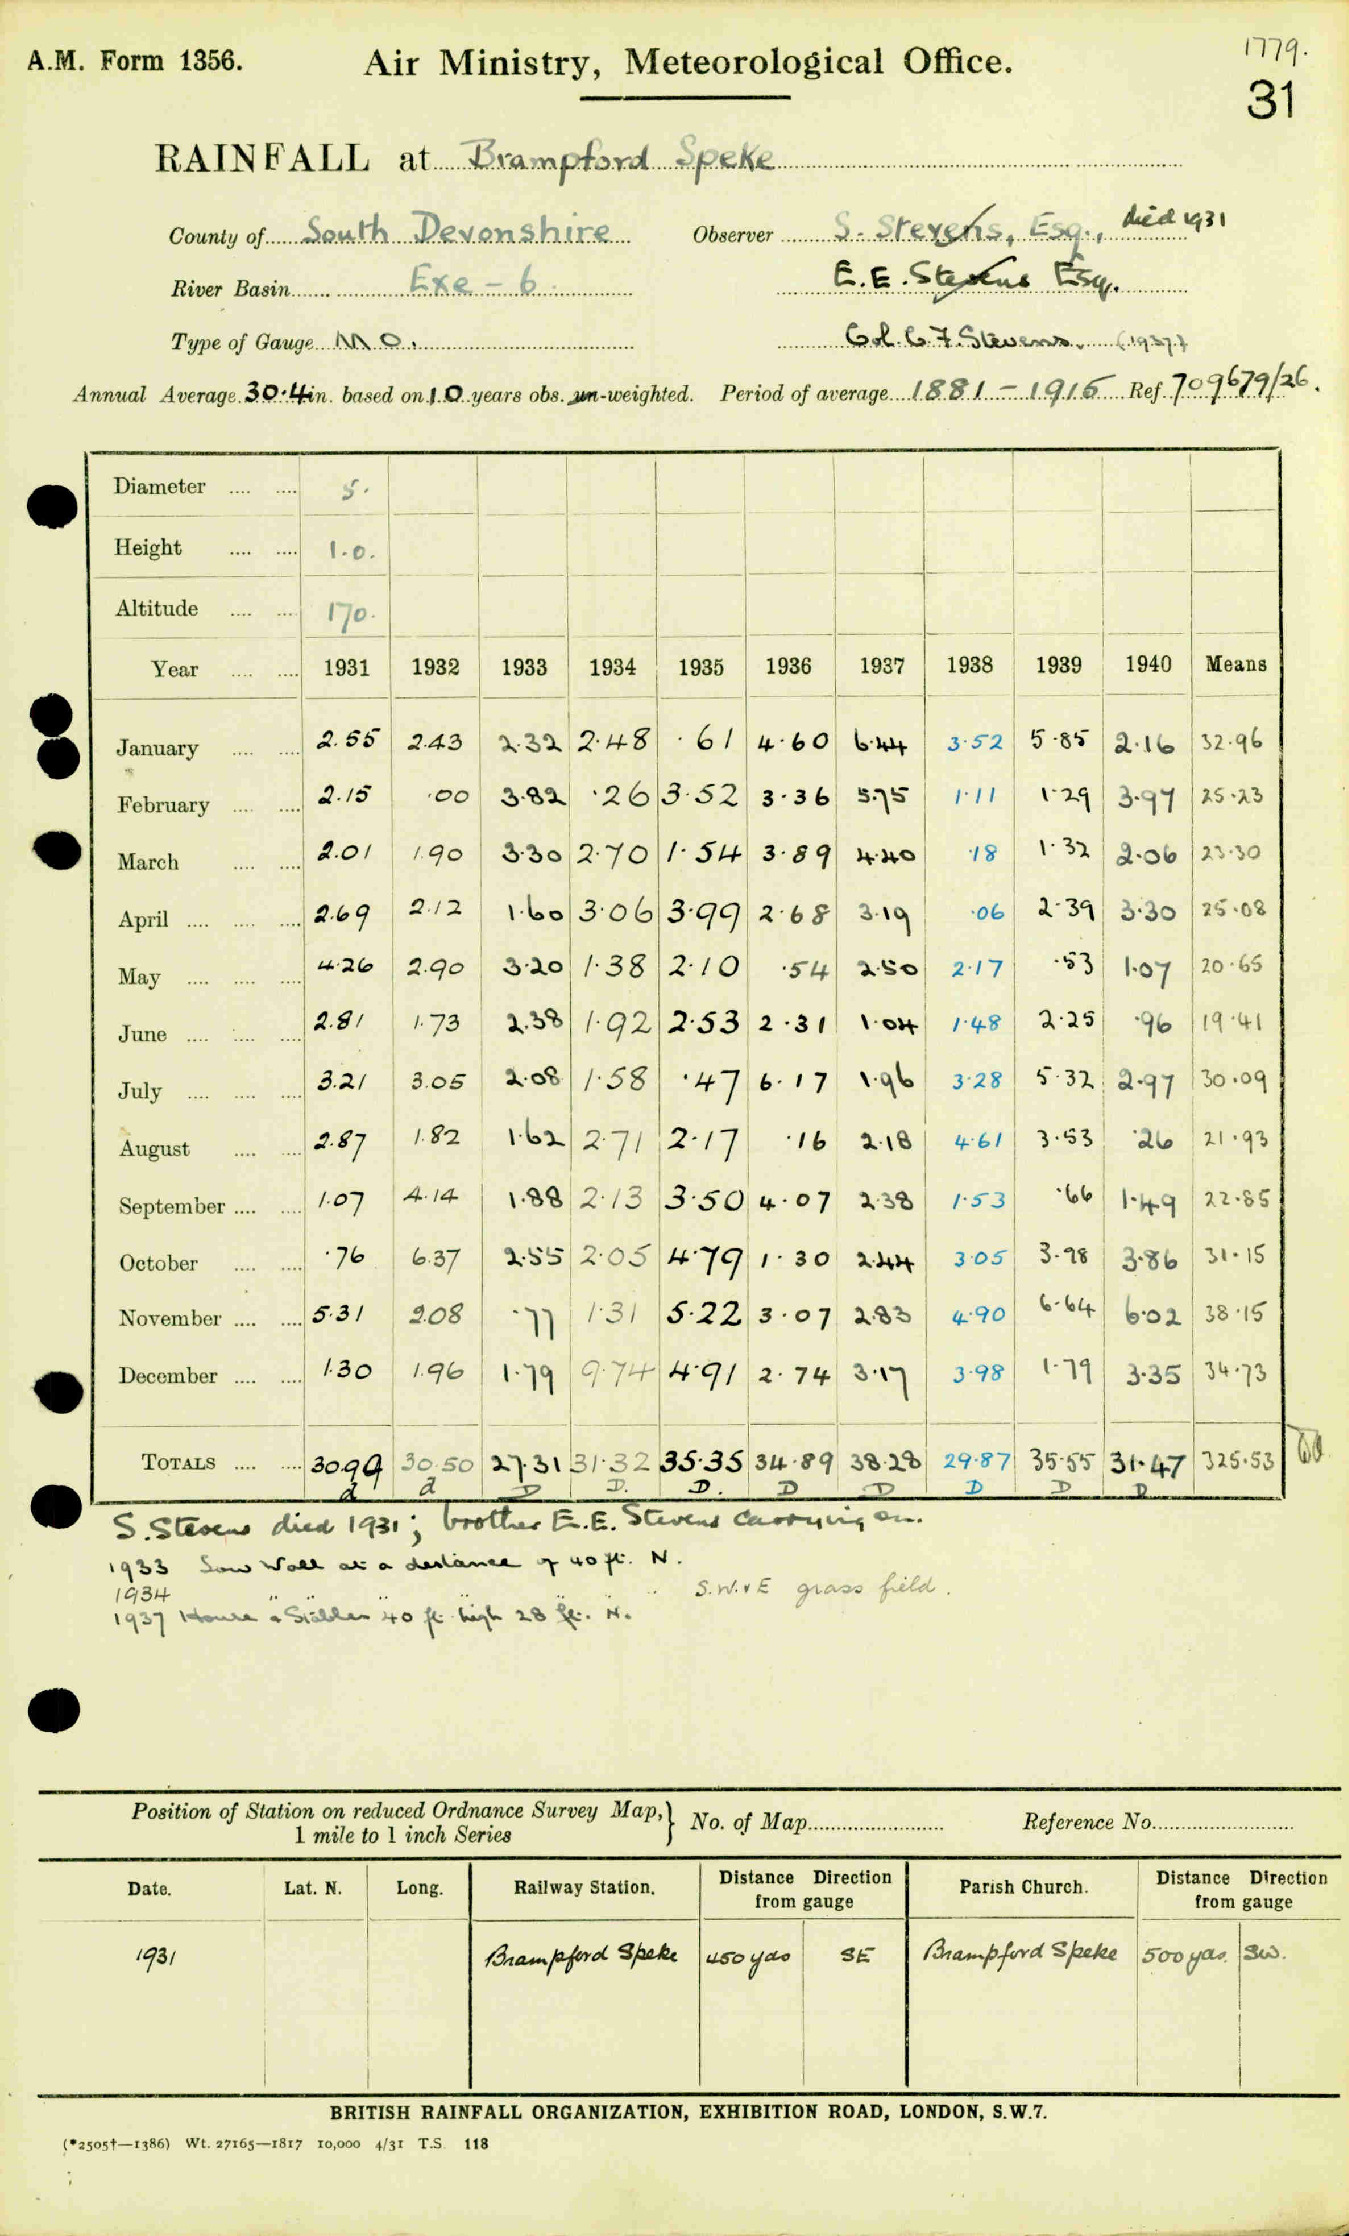 A.M. Form 1356. Air Ministry, Meteorological Office. 1779.
31
RAINFALL at Brampford Speke
County of South Devonshire Observer S. Stevens, Esq., died 1931
River Basin Exe - 6 E.E. Stevens Esq.
Type of Gauge MO. Col. C. F. Stevens. (1937.)
Annual Average 30.4 in. based on 10 years obs. un-weighted. Period of average 1881 - 1915 Ref. 709679/26.
Diameter 5.
Height 1.0.
Altitude 170.
Year 1931 1932 1933 1934 1935 1936 1937 1938 1939 1940 Means
January 2.55 2.43 2.32 2.48 .61 4.60 6.44 3.52 5.85 2.16 32.96
February 2.15 .00 3.82 .26 3.52 3.36 5.75 1.11 1.29 3.97 25.23
March 2.01 1.90 3.30 2.70 1.54 3.89 4.40 .18 1.32 2.06 23.30
April 2.69 2.12 1.60 3.06 3.99 2.68 3.19 .06 2.39 3.30 25.08
May 4.26 2.90 3.20 1.38 2.10 .54 2.50 2.17 .53 1.07 20.65
June 2.81 1.73 2.38 1.92 2.53 2.31 1.04 1.48 2.25 .96 19.41
July 3.21 3.05 2.08 1.58 .47 6.17 1.96 3.28 5.32 2.97 30.09
August 2.87 1.82 1.62 2.71 2.17 .16 2.18 4.61 3.53 .26 21.93
September 1.07 4.14 1.88 2.13 3.50 4.07 2.38 1.53 .66 1.49 22.85
October .76 6.37 2.55 2.05 4.79 1.30 2.44 3.05 3.98 3.86 31.15
November 5.31 2.08 .77 1.31 5.22 3.07 2.83 4.90 6.64 6.02 38.15
December 1.30 1.96 1.79 9.74 4.91 2.74 3.17 3.98 1.79 3.35 34.73
TOTALS 30.99 30.50 27.31 31.32 35.35 34.89 38.28 29.87 35.55 31.47 325.53
d d D D. D. D D D D D
S. Stevens died 1931; brother E.E. Stevens carrying on.
1933 Low Wall at a distance of 40 ft. N.
1934 " " " " S.W. & E grass field.
1937 House & Stables 40 ft high 28 ft. N.
Position of Station on reduced Ordnance Survey Map, 1 mile to 1 inch Series } No. of Map Reference No.
Date. Lat. N. Long. Railway Station. Distance Direction from gauge Parish Church. Distance Direction from gauge
1931 Brampford Speke 450 yds SE Brampford Speke 500 yds. SW.
BRITISH RAINFALL ORGANIZATION, EXHIBITION ROAD, LONDON, S.W.7.
(*2505†—1386) Wt. 27165—1817 10,000 4/31 T.S. 118